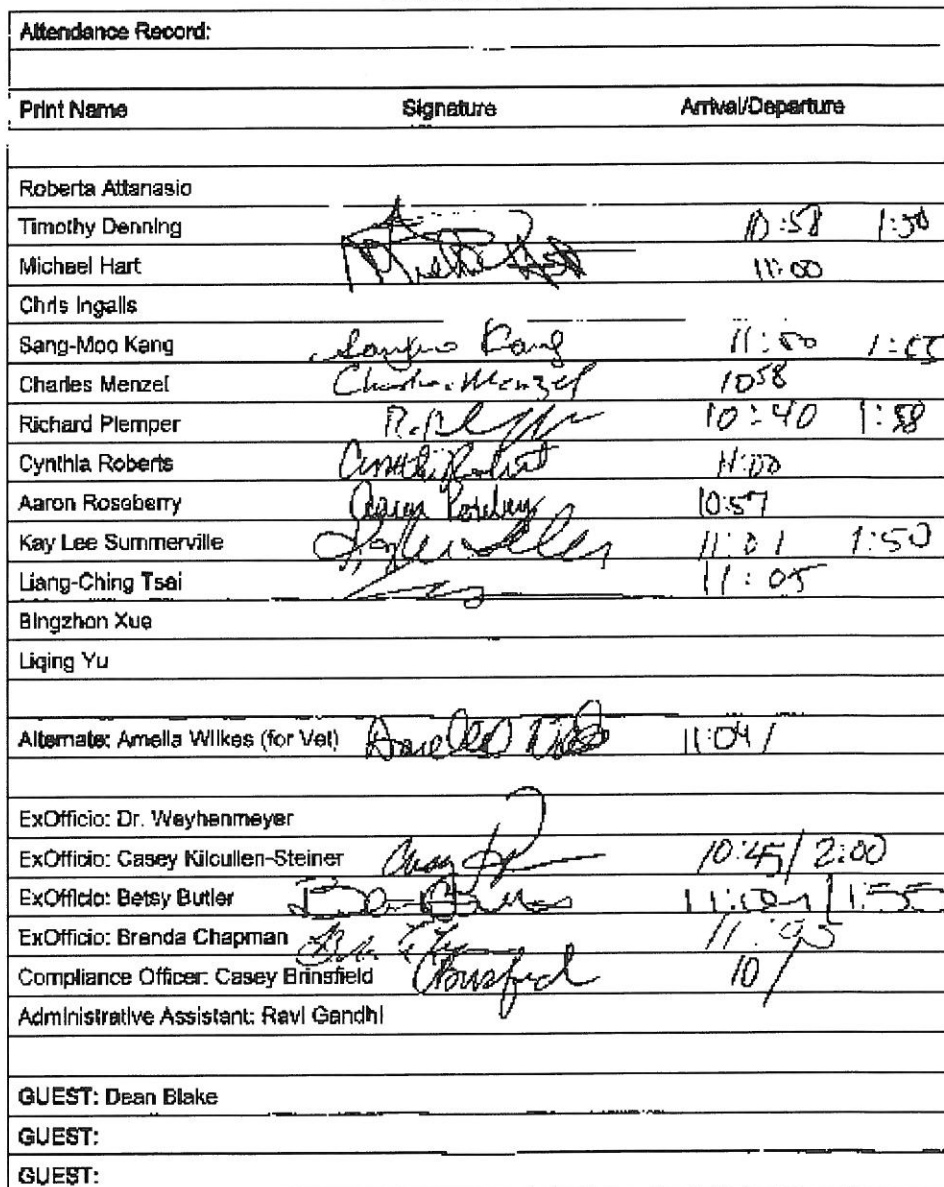 Attendance Record:
Print Name Signature Arrival/Departure
Roberta Attanasio
Timothy Denning 10:58 1:50
Michael Hart 11:00
Chris Ingalls
Sang-Moo Kang Kang 11:00 1:55
Charles Menzel Charles Menzel 1058
Richard Plemper 10:40 1:58
Cynthia Roberts 11:00
Aaron Roseberry Aaron 10:57
Kay Lee Summerville 11:01 1:50
Liang-Ching Tsai 11:05
Bingzhon Xue
Liqing Yu
Alternate: Amelia Wilkes (for Vet) 11:04 /
ExOfficio: Dr. Weyhenmeyer
ExOfficio: Casey Kilcullen-Steiner Casey 10:45 / 2:00
ExOfficio: Betsy Butler 1:55
ExOfficio: Brenda Chapman
Compliance Officer: Casey Brinsfield 10 /
Administrative Assistant: Ravi Gandhi
GUEST: Dean Blake
GUEST:
GUEST: